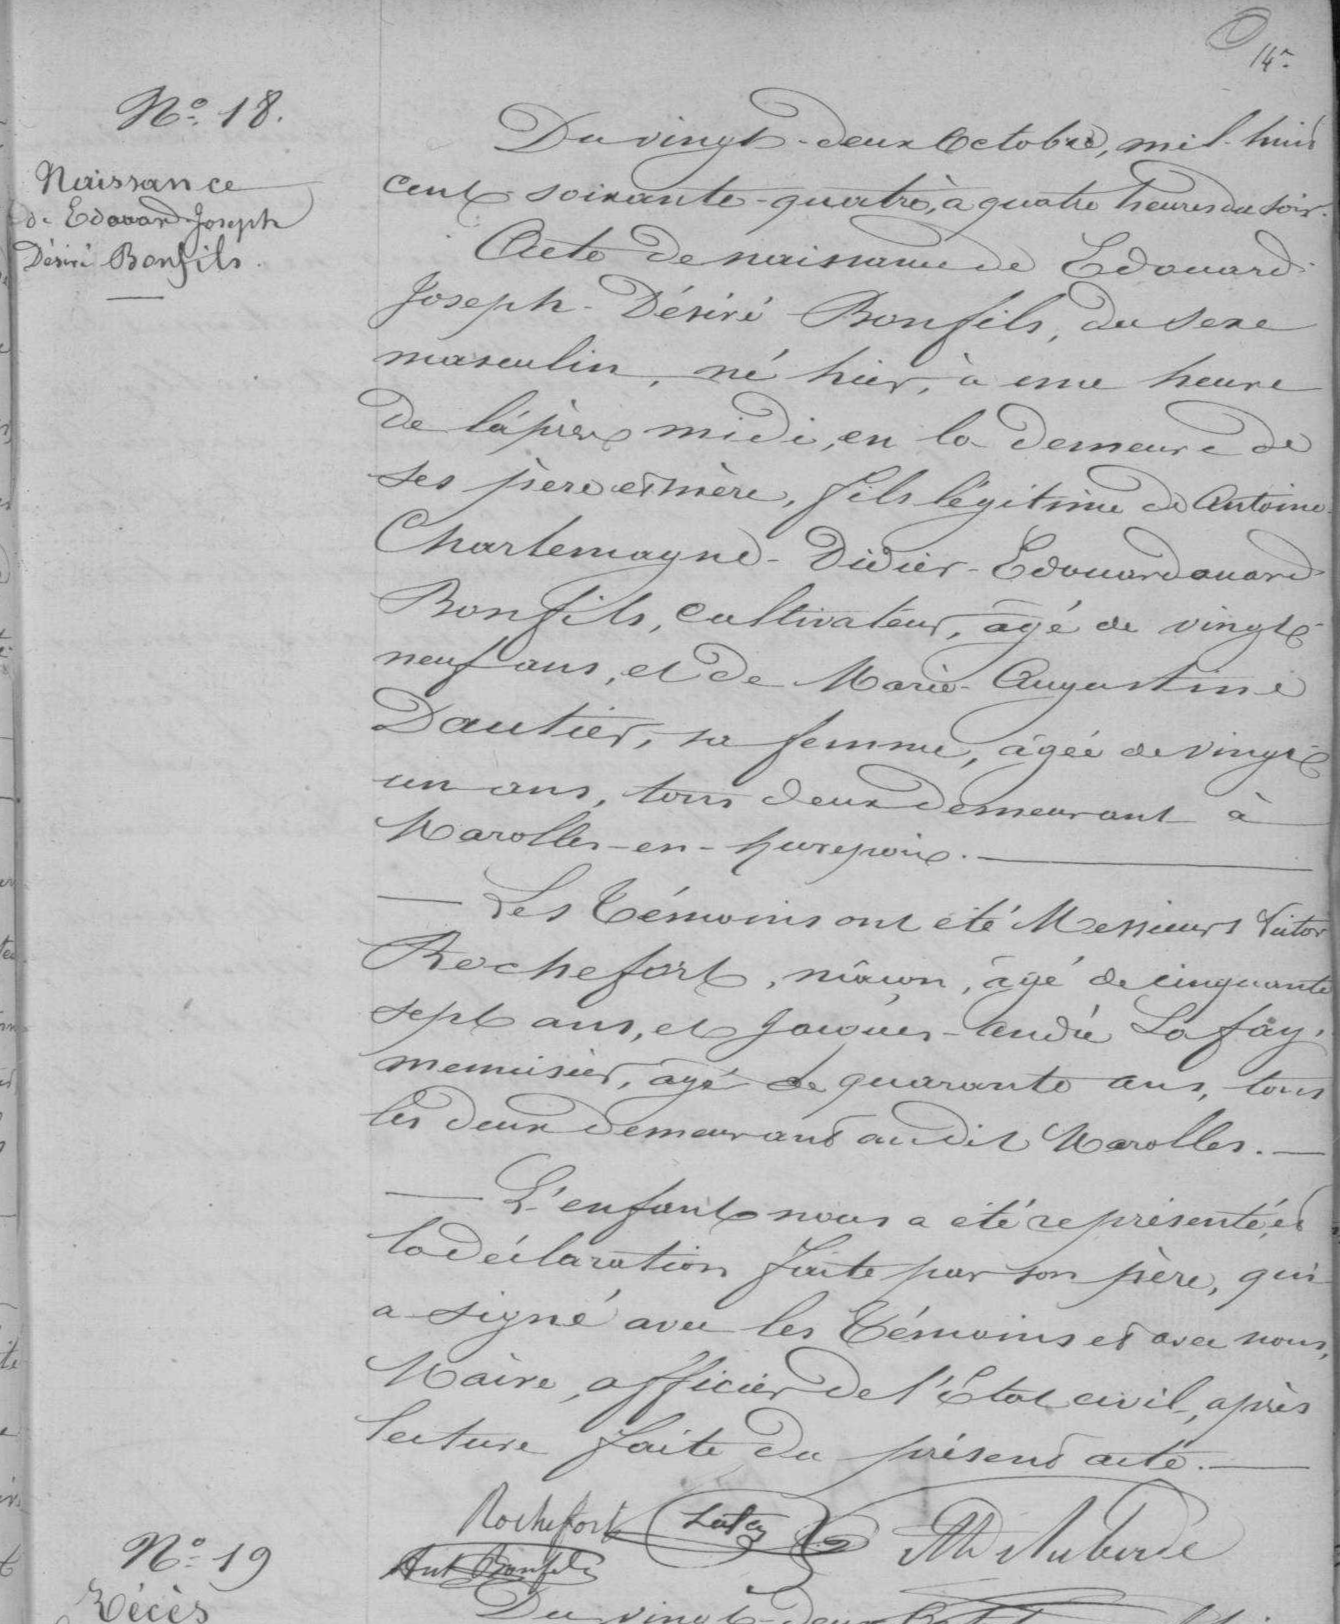 14.
N.º 18.
Naissance
de Edouard-Joseph
Désiré Bonfils.
Du vingt-deux Octobre, mil-huit
cent soixante-quatre, à quatre heures du soir.
Acte de naissance de Edouard-
Joseph-Désiré Bonfils, du sexe
masculin, né hier, à une heure
de l'après midi, en la demeure de
ses père et mère, fils légitime de Antoine-
Charlemagne-Didier-Edouardouard
Bonfils, cultivateur, âgé de vingt-
neuf ans, et de Marie-Augustine
Dautier, sa femme, âgée de vingt-
un ans, tous deux demeurant à
Marolles-en-hurepoix.
Les Témoins ont été Messieurs Victor
Rochefort, mâçon, âgé de cinquante
sept ans, et Jacques-André Lafay,
menuisier, âgé de quarante ans, tous
les deux demeurant audit Marolles.
L'enfant nous a été représenté, et
la déclaration faite par son père, qui
a signé avec les Témoins et avec nous,
Maire, officier de l'Etat civil, après
lecture faite du présent acte.
Rochefort Lafay
Ant Bonfils
N.º 19
Décès
Du vingt-deux